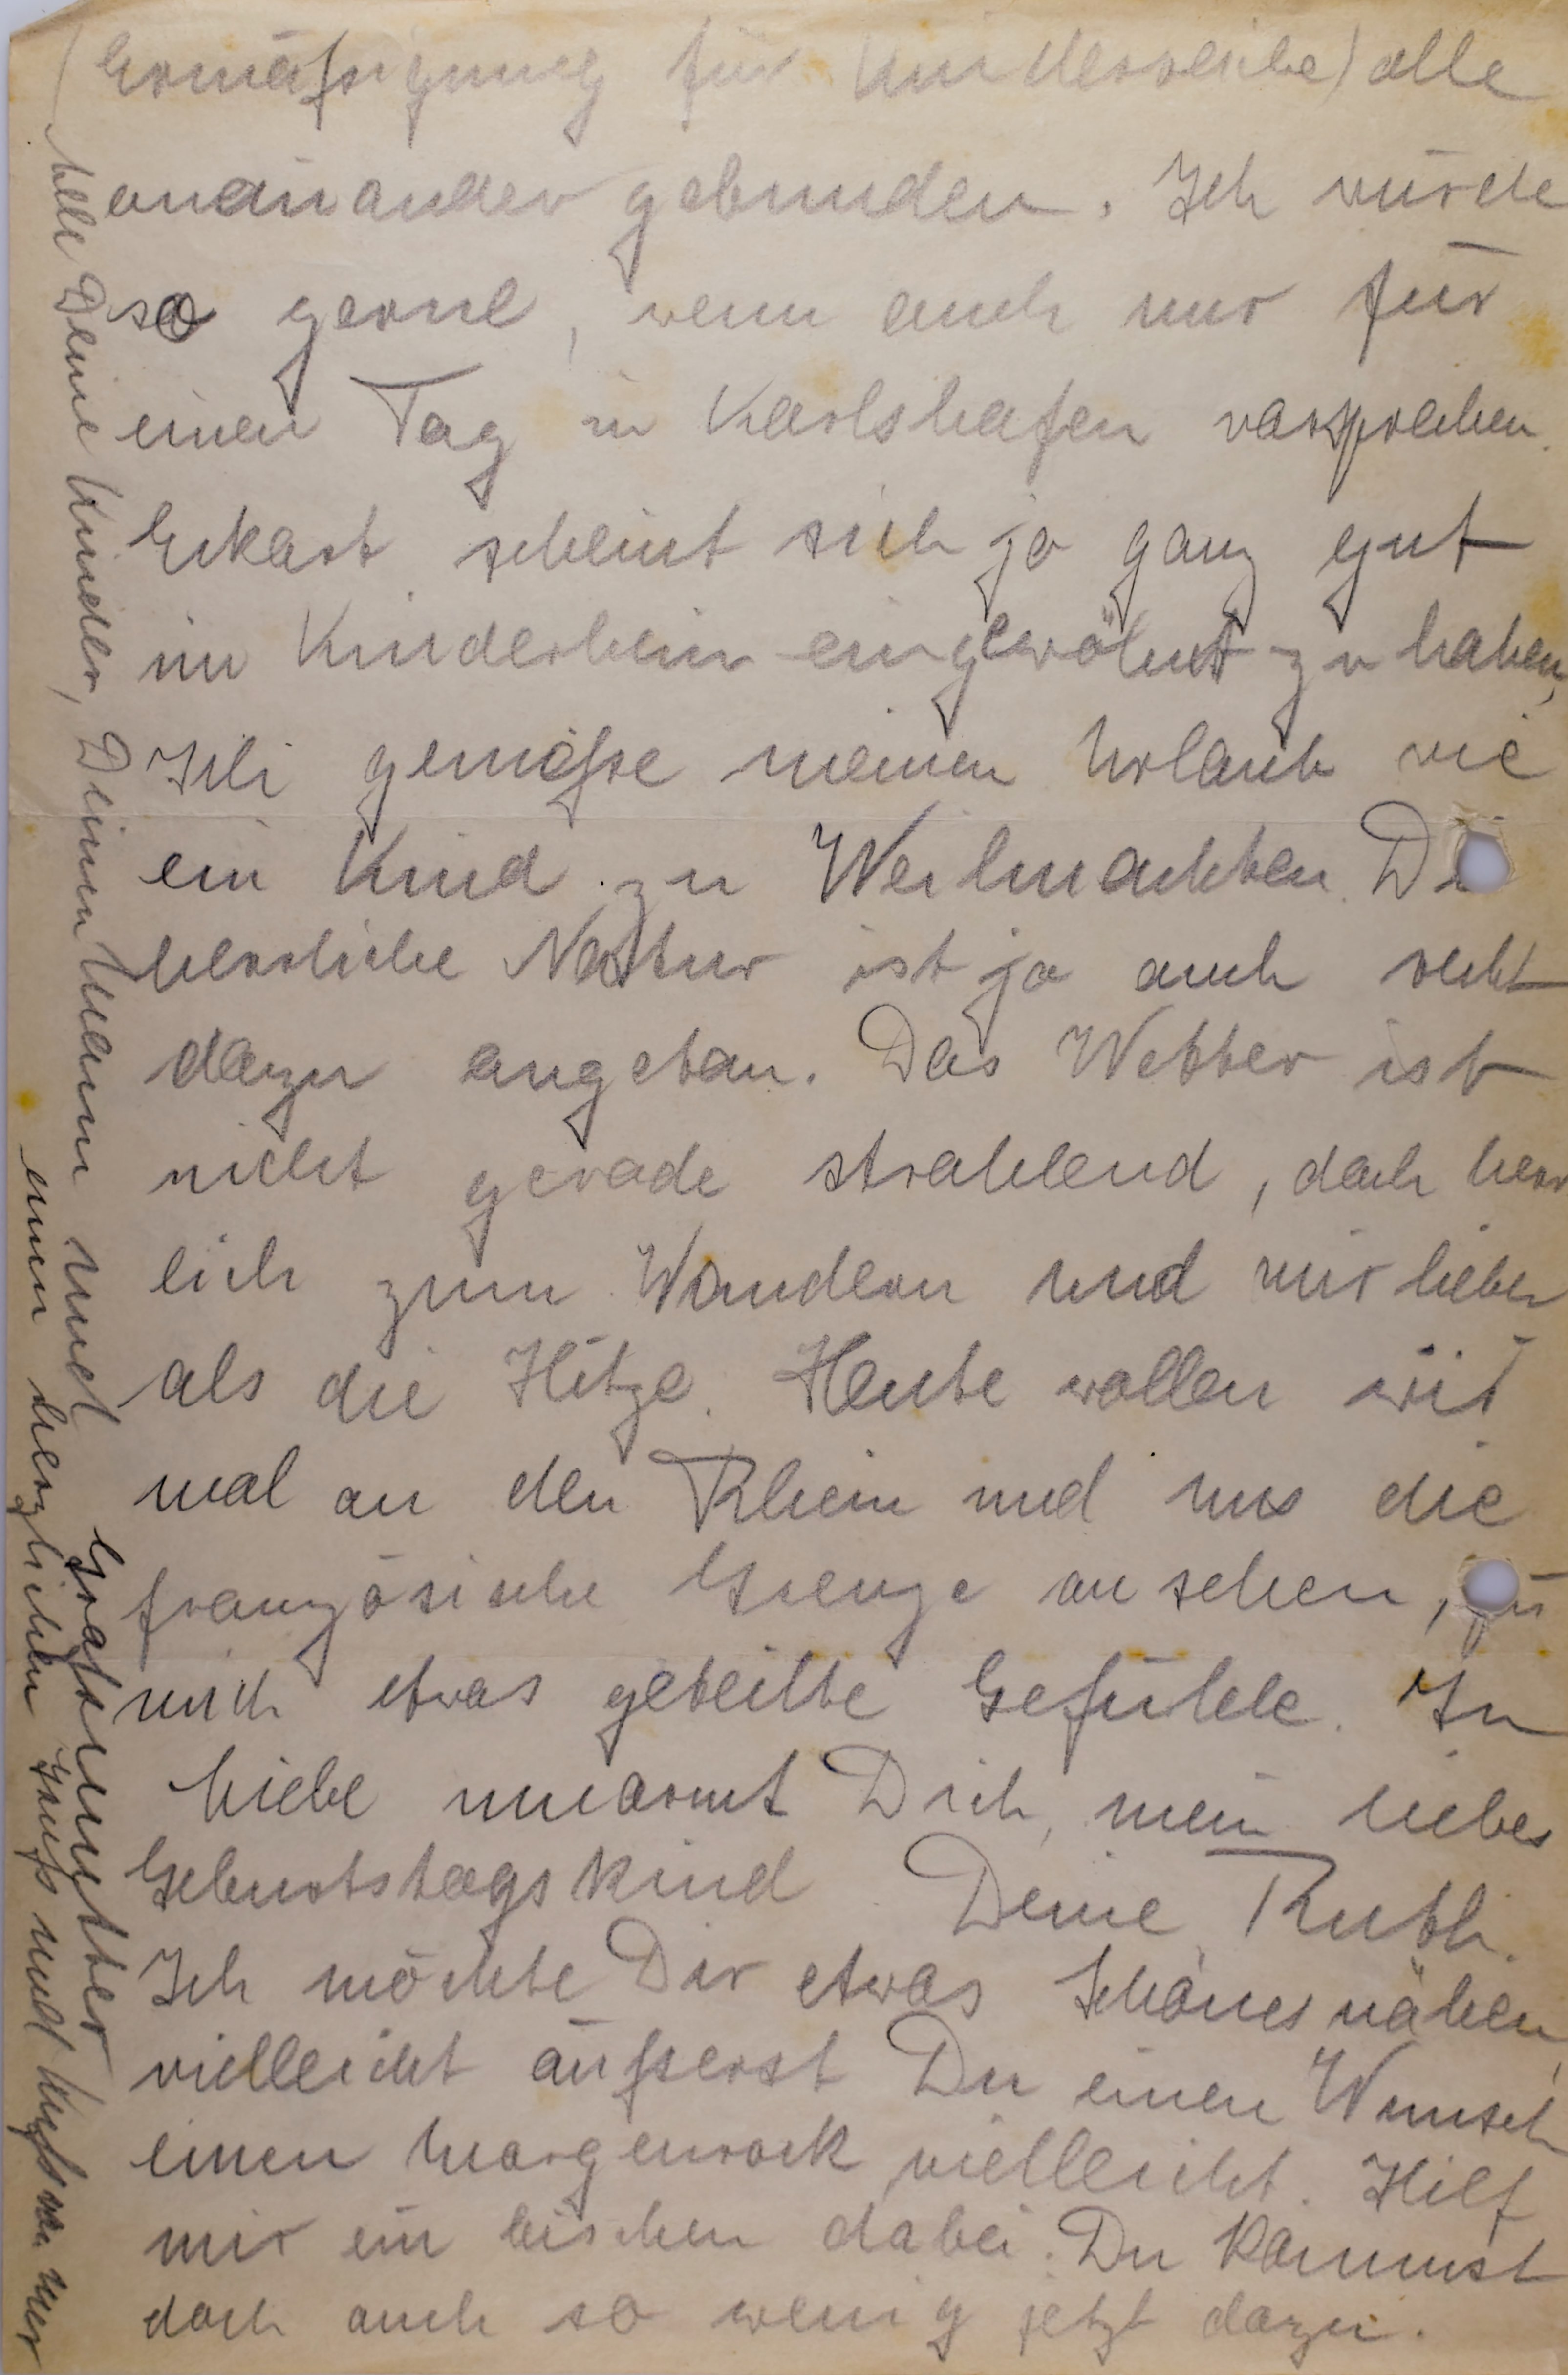 (Ermäßigung für Kinderreiche) alle
aneinander gebunden. Ich würde
so gerne, wenn auch nur für
einen Tag in Karlshafen vorsprechen.
Eckart scheint sich ja ganz gut
im Kinderheim eingewöhnt zu haben,
Ich genieße meinen Urlaub wie
ein Kind zu Weihnachten. Die
herrliche Natur ist ja auch recht
dazu angetan. Das Wetter ist
nicht gerade strahlend, doch herr
lich zum Wandern und mir lieber
als die Hitze. Heute wollen wir
mal an den Rhein und uns die
französische Grenze ansehen, für
mich etwas geteilte Gefühle. In
Liebe umarmt Dich, mein liebes
Geburtstagskind Deine Ruth.
Ich möchte Dir etwas Schönes nähen,
vielleicht äußerst Du einen Wunsch
einen Morgenrock vielleicht. Hilf
mir ein bischen dabei. Du kommst
doch auch so wenig jetzt dazu.
Alle Deine Kinder, Deinen Mann und Großmutter
einen herzlichen Gruß und Kuß von mir